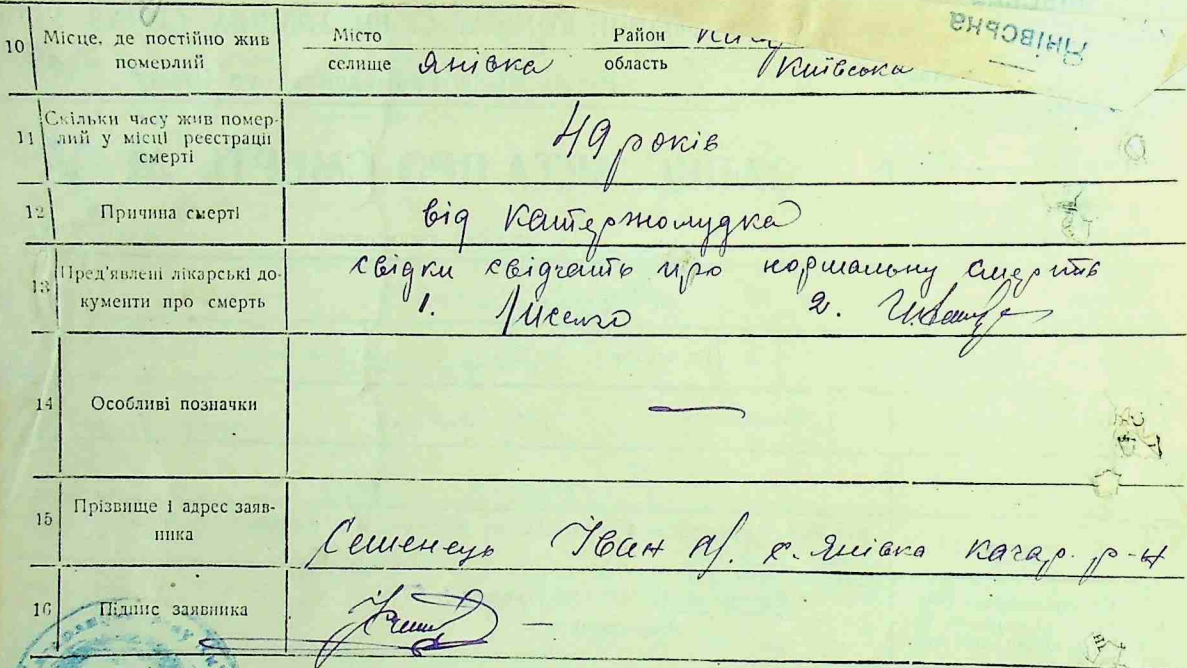 10 Місце, де постійно жив померлий
Місто Район
селище Янівка область Київська
Янівська
11 Скільки часу жив помер-
лий у місці реєстрації
смерті
49 років
12 Причина смерті
від
13 Пред'явлені лікарські до-
кументи про смерть
свідки свідчать про нормальну смерть
1. 2.
14 Особливі позначки —
15 Прізвище і адрес заяв-
ника
Семенець Іван с. Янівка кагар. р-н
16 Підпис заявника